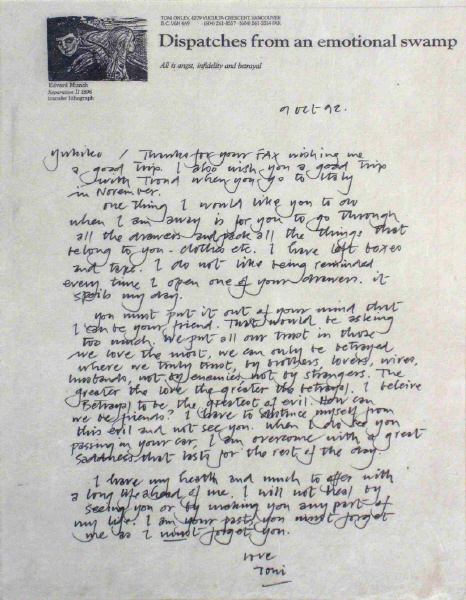 TONI ONLEY, 4279 YUCULTA CRESCENT, VANCOUVER
B.C. V6N 4A9 (604) 261-8557 · (604) 261-3514 FAX
Dispatches from an emotional swamp
All is angst, infidelity and betrayal
Edvard Munch
Separation II 1896
transfer lithograph
9 Oct 92.
Yukiko / Thanks for your FAX wishing me
a good trip. I also wish you a good trip
with Trond when you go to Italy
in November.
one thing I would like you to do
when I am away is for you to go through
all the drawers and pack all the things that
belong to you - clothes etc. I have left boxes
and tape. I do not like being reminded
every time I open one of your drawers. it
spoils my day.
You must put it out of your mind that
I can be your friend. That would be asking
too much. We put all our trust in those
we love the most, we can only be betrayed
where we truly trust, by brothers, lovers, wives,
husbands, not by enemies, not by strangers. The
greater the love the greater the betrayal. I beleive
Betrayal to be the greatest of evil. How can
we be friends? I have to distance myself from
this evil and not see you. When I do see you
passing in your car, I am overcome with a great
saddness that lasts for the rest of the day.
I have my health and much to offer with
a long life ahead of me. I will not heal by
seeing you or by making you any part of
my life. I am your past, you must forget
me as I must forget you.
love
Toni